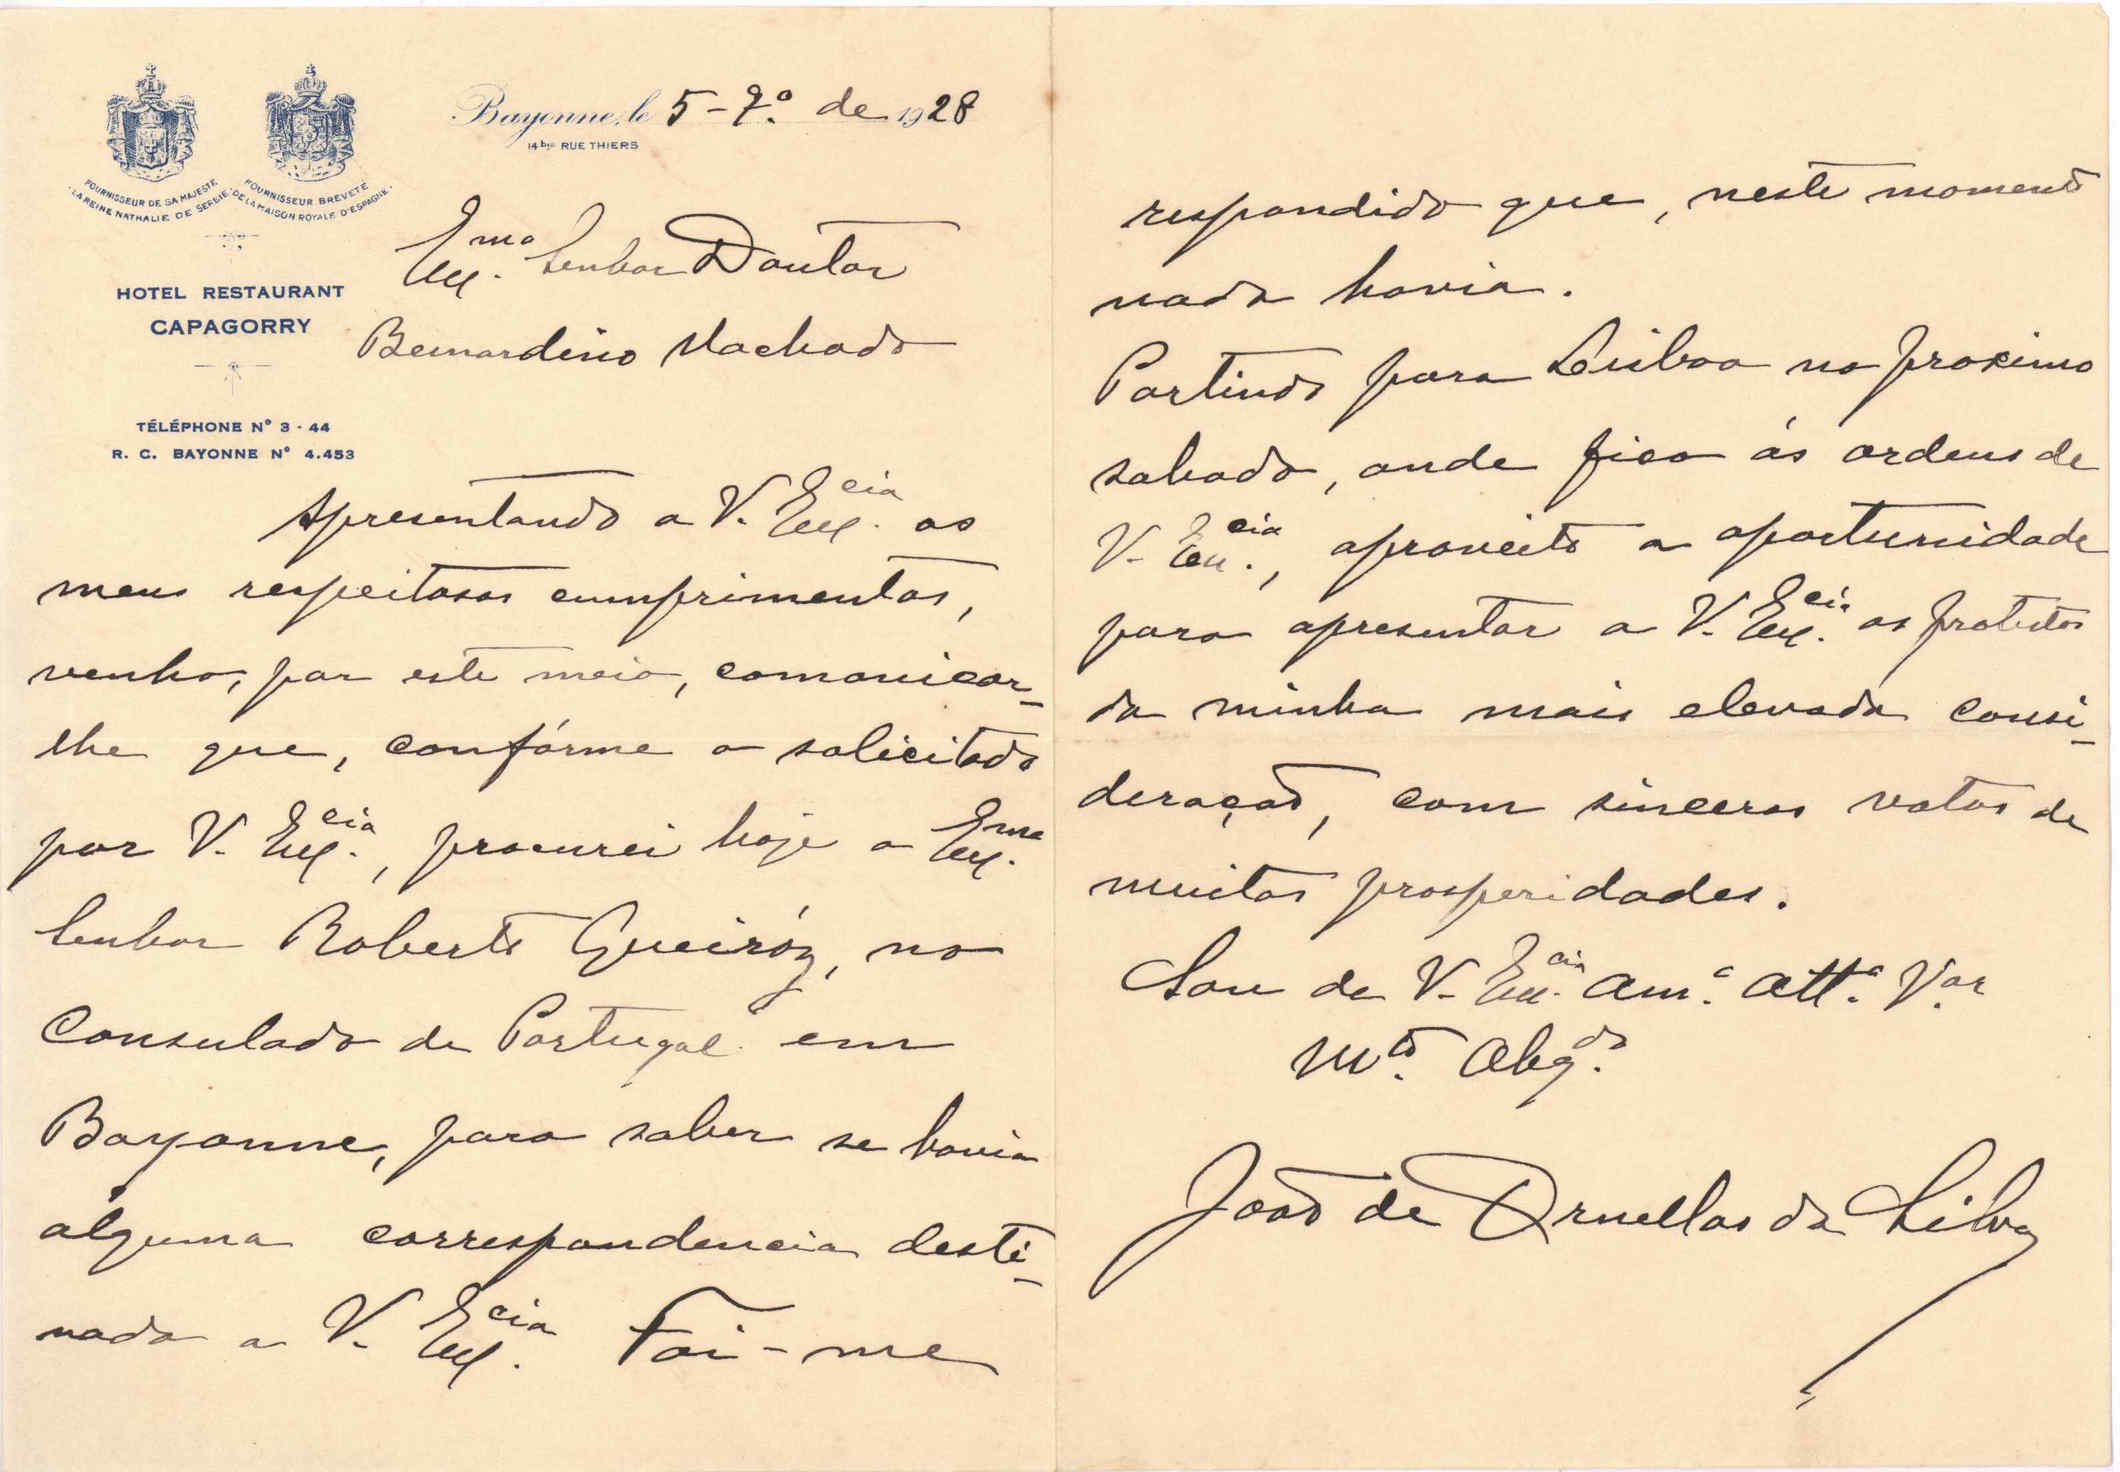 FOURNISSEUR DE SA MAJESTE
LA REINE NATHALIE DE SERBIE
FOURNISSEUR BREVETÉ
DE LA MAISON ROYALE D'ESPAGNE
HOTEL RESTAURANT
CAPAGORRY
TÉLÉPHONE N° 3 - 44
R. C. BAYONNE N° 4.453
Bayonne, le 5-7º de 1928
14 bis RUE THIERS
Exmo. Senhor Doutor
Bernardino Machado
Apresentando a V. Excia. os
meus respeitosos cumprimentos,
venho, por este meio, comonicar-
lhe que, confórme o solicitado
por V. Excia., procurei hoje o Exmo.
Senhor Roberto Queiróz, no
Consulado de Portugal em
Bayonne, para saber se havia
alguma correspondencia desti-
nada a V. Excia. Foi-me
respondido que, neste momento
nada havia.
Partindo para Lisboa no proximo
sabado, onde fico ás ordens de
V. Excia., aproveito a oportunidade
para apresentar a V. Excia. os protestos
da minha mais elevada consi-
deração, com sinceros votos de
muitas prosperidades.
Sou de V. Excia. Amº. Attº. Vor.
Mto. Obgdo.
João de Ornellas da Silva